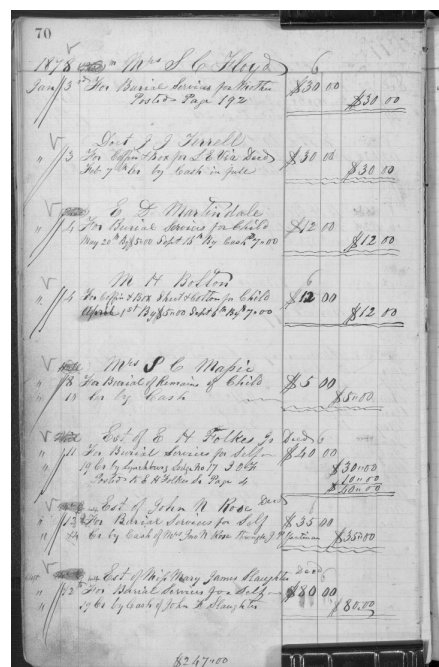 70
1878 Mrs S C Floyd 6
Jan 3 For Burial Services for Mother $30 00
Posted Page 192 $30 00
Doct J J Terrell
" 3 For Coffin & Box for L E Via Decd $30 00
Feb 7th Cr by Cash in full $30 00
E D Martindale
" 4 For Burial Services for Child $12 00
May 20th By $5.00 Sept 15th By Cash $7.00 $12 00
M H Bolton 6
" 4 For Coffin & Box Sheet & Cotton for Child $12 00
April 1st By $5.00 Sept By $7.00 $12 00
Mrs S C Massie
" 8 For Burial of Remains of Child $5 00
" 11 Cr by Cash $5.00
Est. of E H Folkes Jr Decd 6
" 11 For Burial Services for Self $40 00
" 19 Cr by Lynchburg Lodge No 17 I O O F $30.00
Posted to E H Folkes Sr Page 4 10.00
$40.00
Est. of John N Rose Decd
" 12 For Burial Services for Self $35 00
" 24 Cr by Cash of Mrs Jno N Rose Through J P $35.00
Est of Miss Mary James Slaughter Decd 6
" 12 For Burial Services for Self $80 00
" 19 Cr by Cash of John F Slaughter $80.00
$247.00